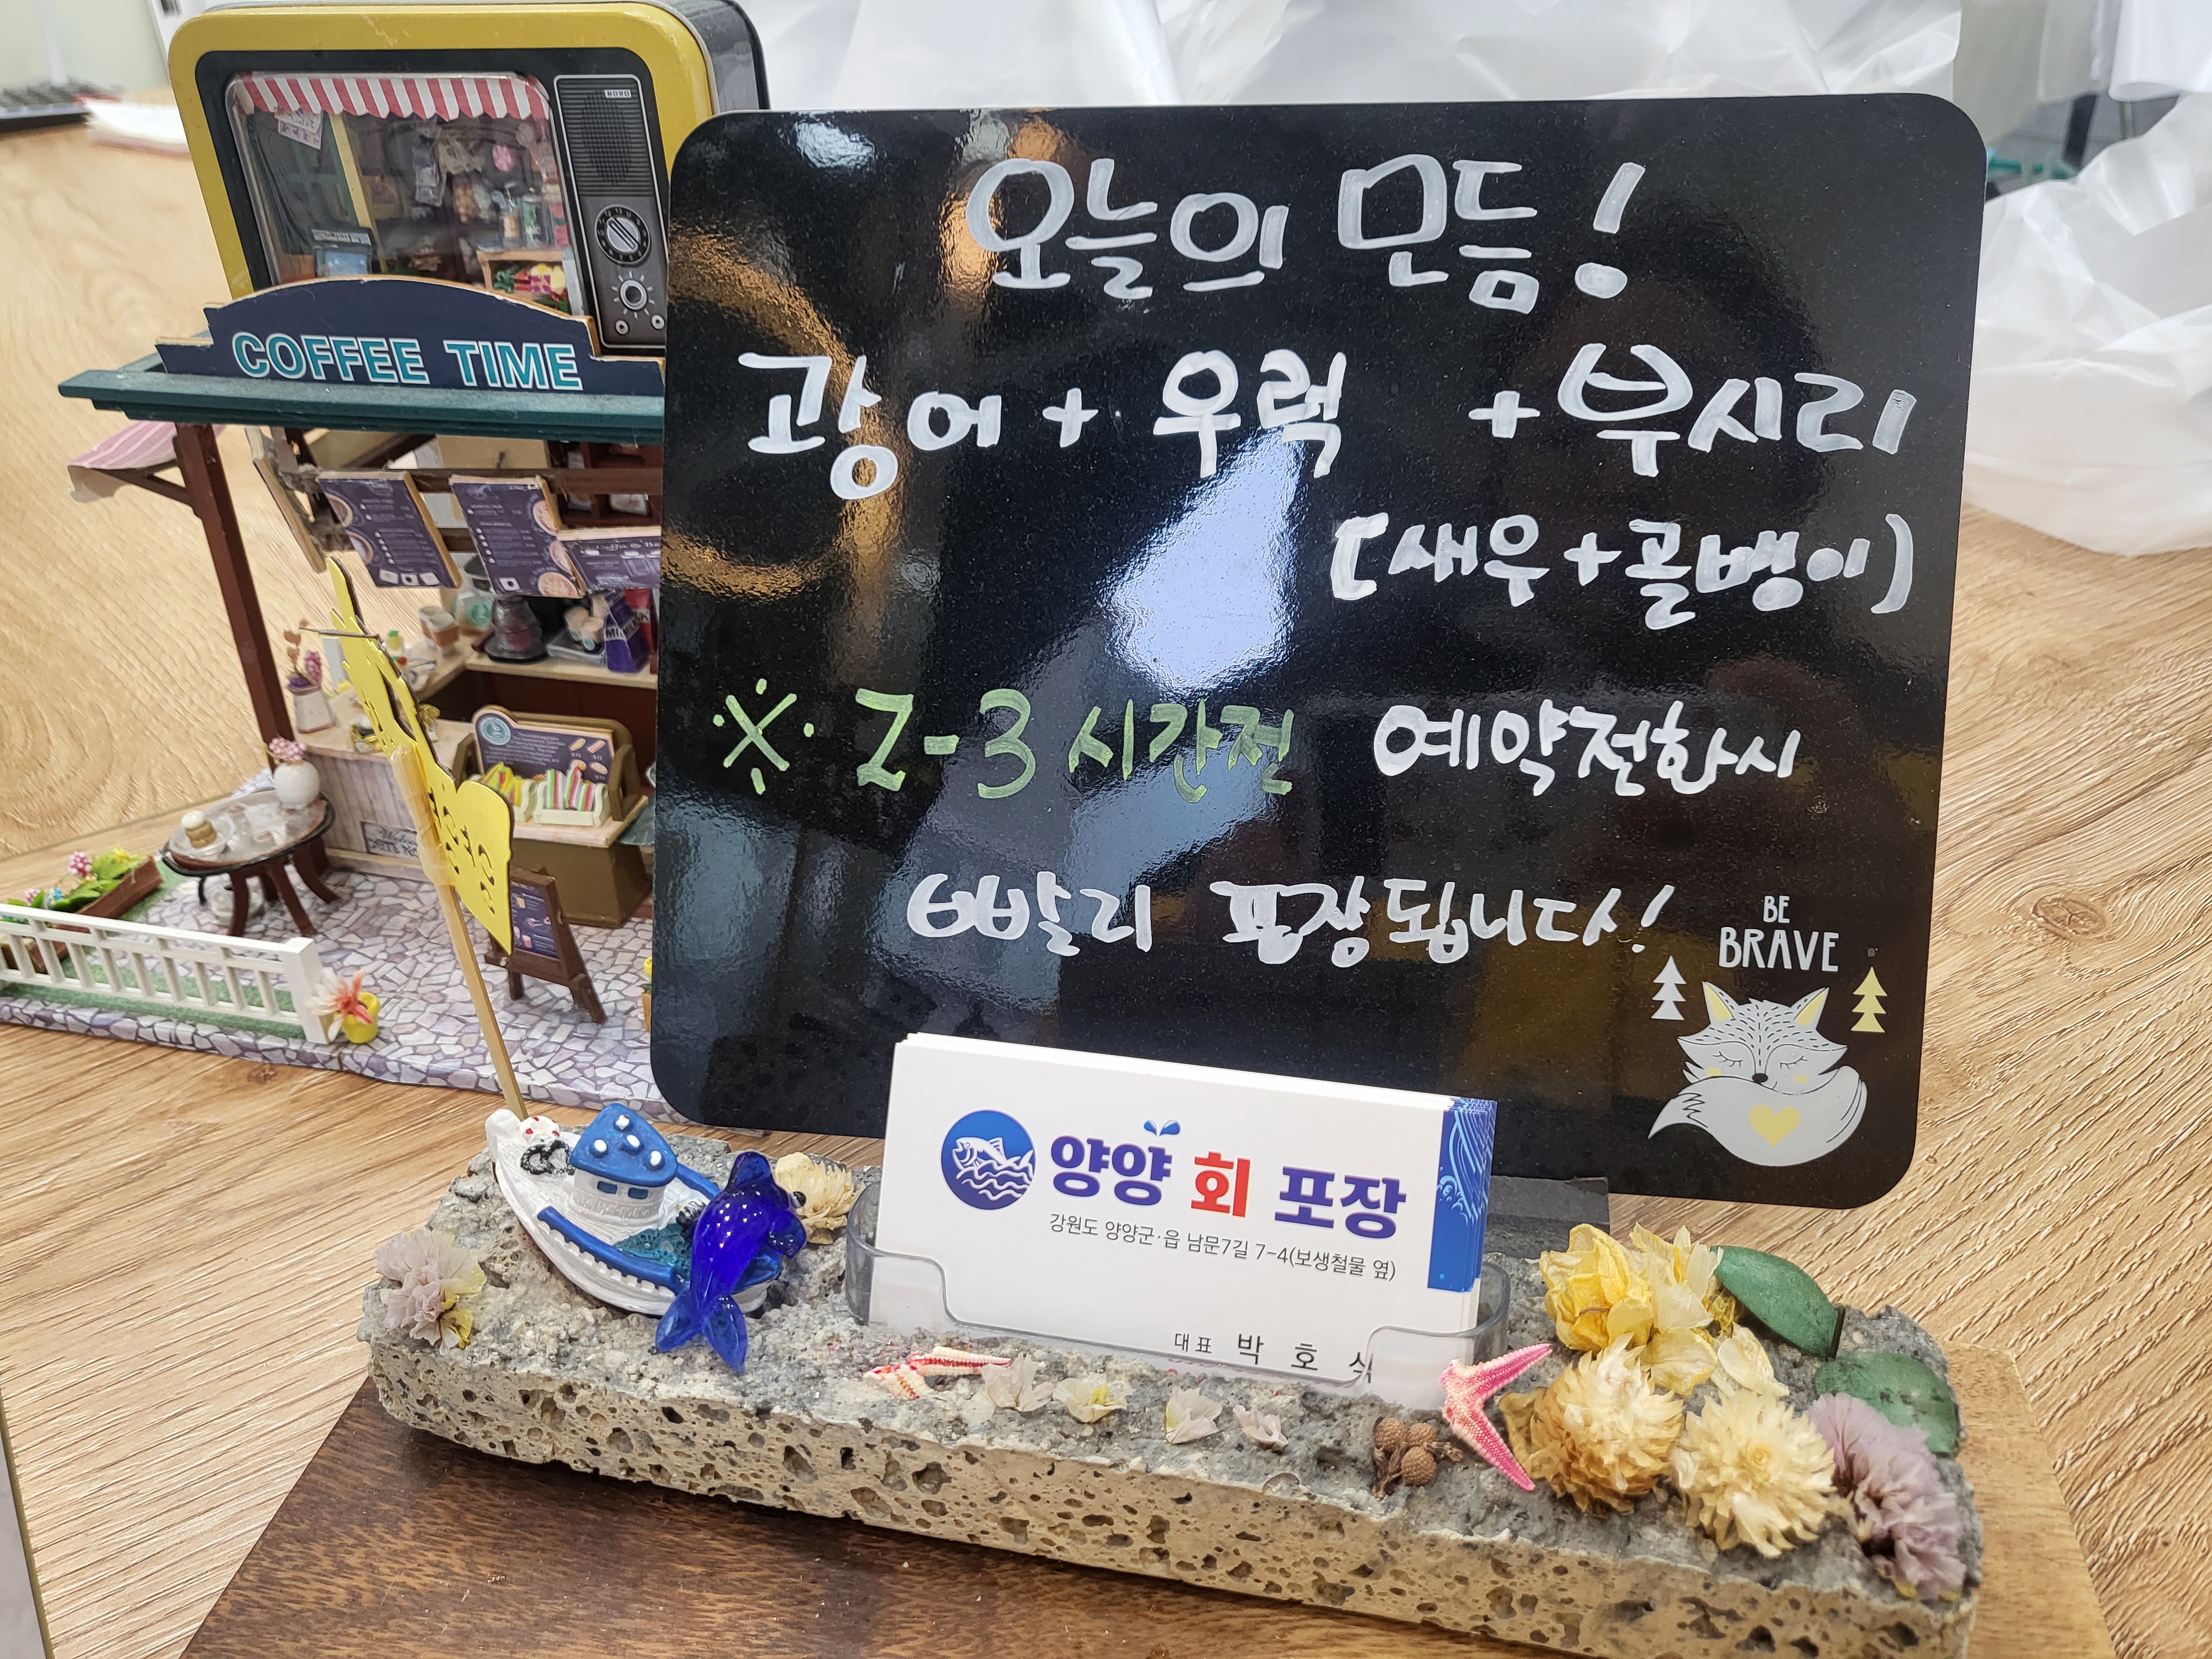 오늘의 모듬!
광어 + 우럭 + 부시리
(새우+골뱅이)
※ 2-3 시간전 예약전화시
빨리 포장됩니다!
BE
BRAVE
COFFEE TIME
양양 회 포장
강원도 양양군·읍 남문7길 7-4(보생철물 옆)
대표 박 호 식